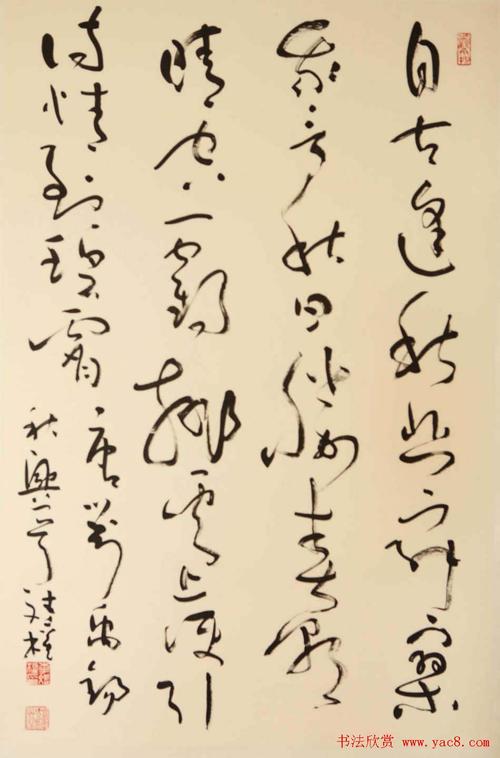 自古逢秋悲寂寥
我言秋日勝春朝
晴空一鶴排雲上便引
詩情到碧霄唐劉禹錫
秋興
书法欣赏 www.yac8.com